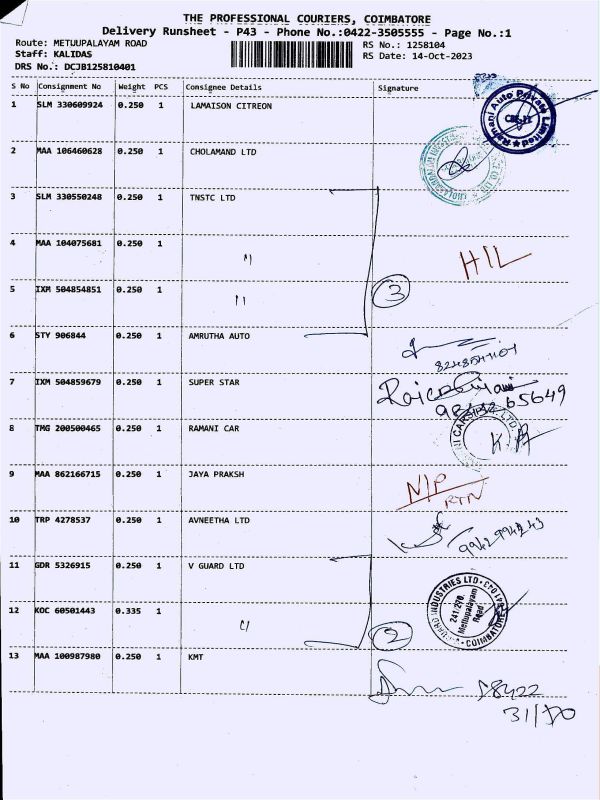 THE PROFESSIONAL COURIERS, COIMBATORE
Delivery Runsheet - P43 - Phone No.:0422-3505555 - Page No.:1
Route: METUUPALAYAM ROAD
Staff: KALIDAS
DRS No.: DCJB125810401
RS No.: 1258104
RS Date: 14-Oct-2023
S No Consignment No Weight PCS Consignee Details Signature
1 SLM 330609924 0.250 1 LAMAISON CITREON
Ramani Auto Private Limited
2 MAA 106460628 0.250 1 CHOLAMAND LTD
3 SLM 330550248 0.250 1 TNSTC LTD
4 MAA 104075681 0.250 1 "
HIL
5 IXM 504854851 0.250 1 "
3
6 STY 906844 0.250 1 AMRUTHA AUTO
7 IXM 504859679 0.250 1 SUPER STAR
65649
8 TMG 200500465 0.250 1 RAMANI CAR
9 MAA 862166715 0.250 1 JAYA PRAKSH
N/P
RTN
10 TRP 4278537 0.250 1 AVNEETHA LTD
11 GDR 5326915 0.250 1 V GUARD LTD
INDUSTRIES LTD
241/270,
Mettupalayam
Road
COIMBATORE
12 KOC 60501443 0.335 1 "
2
13 MAA 100987980 0.250 1 KMT